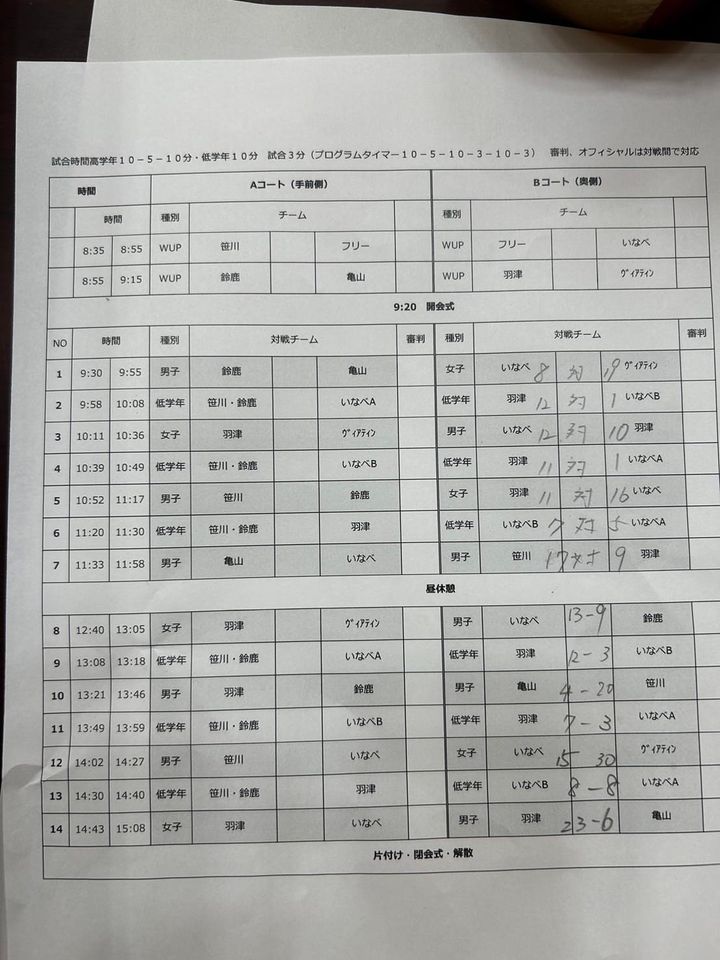 試合時間高学年１０－５－１０分・低学年１０分　試合３分（プログラムタイマー１０－５－１０－３－１０－３）　審判、オフィシャルは対戦間で対応
時間 Aコート（手前側） Bコート（奥側）
時間 種別 チーム 種別 チーム
8:35 8:55 WUP 笹川 フリー WUP フリー いなべ
8:55 9:15 WUP 鈴鹿 亀山 WUP 羽津 ヴィアティン
9:20 開会式
NO 時間 種別 対戦チーム 審判 種別 対戦チーム 審判
1 9:30 9:55 男子 鈴鹿 亀山 女子 いなべ 8 対 19 ヴィアティン
2 9:58 10:08 低学年 笹川・鈴鹿 いなべA 低学年 羽津 12 対 1 いなべB
3 10:11 10:36 女子 羽津 ヴィアティン 男子 いなべ 12 対 10 羽津
4 10:39 10:49 低学年 笹川・鈴鹿 いなべB 低学年 羽津 11 対 1 いなべA
5 10:52 11:17 男子 笹川 鈴鹿 女子 羽津 11 対 16 いなべ
6 11:20 11:30 低学年 笹川・鈴鹿 羽津 低学年 いなべB 7 対 5 いなべA
7 11:33 11:58 男子 亀山 いなべ 男子 笹川 17 対 9 羽津
昼休憩
8 12:40 13:05 女子 羽津 ヴィアティン 男子 いなべ 13-9 鈴鹿
9 13:08 13:18 低学年 笹川・鈴鹿 いなべA 低学年 羽津 12-3 いなべB
10 13:21 13:46 男子 羽津 鈴鹿 男子 亀山 4-20 笹川
11 13:49 13:59 低学年 笹川・鈴鹿 いなべB 低学年 羽津 7-3 いなべA
12 14:02 14:27 男子 笹川 いなべ 女子 いなべ 15 30 ヴィアティン
13 14:30 14:40 低学年 笹川・鈴鹿 羽津 低学年 いなべB 8-8 いなべA
14 14:43 15:08 女子 羽津 いなべ 男子 羽津 23-6 亀山
片付け・閉会式・解散